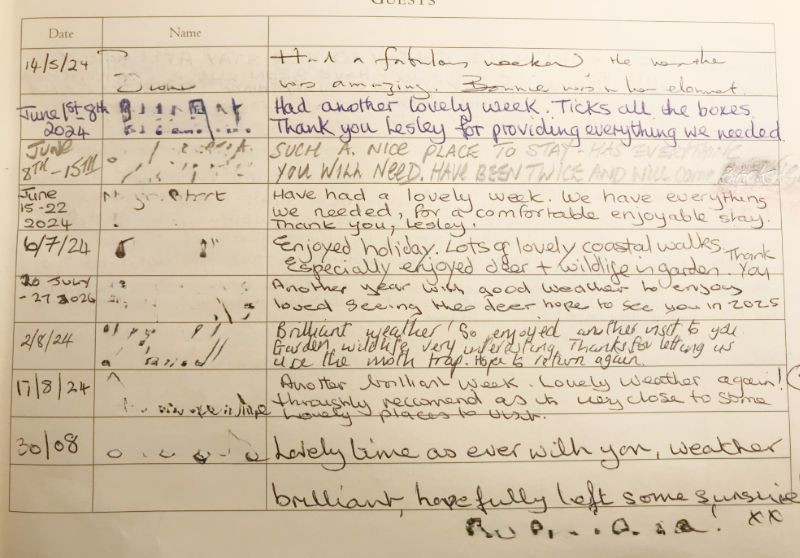 GUESTS
Date Name
14/5/24 Had a fabulous weekend the weather
was amazing. Bonnie was in her element.
June 1st-8th Had another lovely week. Ticks all the boxes
2024 Thank you Lesley for providing everything we needed
JUNE SUCH A NICE PLACE TO STAY - HAS EVERYTHING
8TH-15TH YOU WILL NEED. HAVE BEEN TWICE AND WILL COME
June Have had a lovely week. We have everything
15-22 we needed, for a comfortable enjoyable stay.
2024 Thank you, Lesley.
6/7/24 Enjoyed holiday. Lots of lovely coastal walks. Thank
Especially enjoyed deer + wildlife in garden. You
20 JULY Another year with good weather to enjoy
-27 loved seeing the deer hope to see you in 2025
2/8/24 Brilliant weather! So enjoyed another visit to you.
Garden, wildlife very interesting. Thanks for letting us
use the moth trap. Hope to return again.
17/8/24 Another brilliant week. Lovely weather again!
throughly recomend as its very close to some
lovely places to visit.
30/08 Lovely time as ever with you, weather
brilliant, hopefully left some sunshine
xx